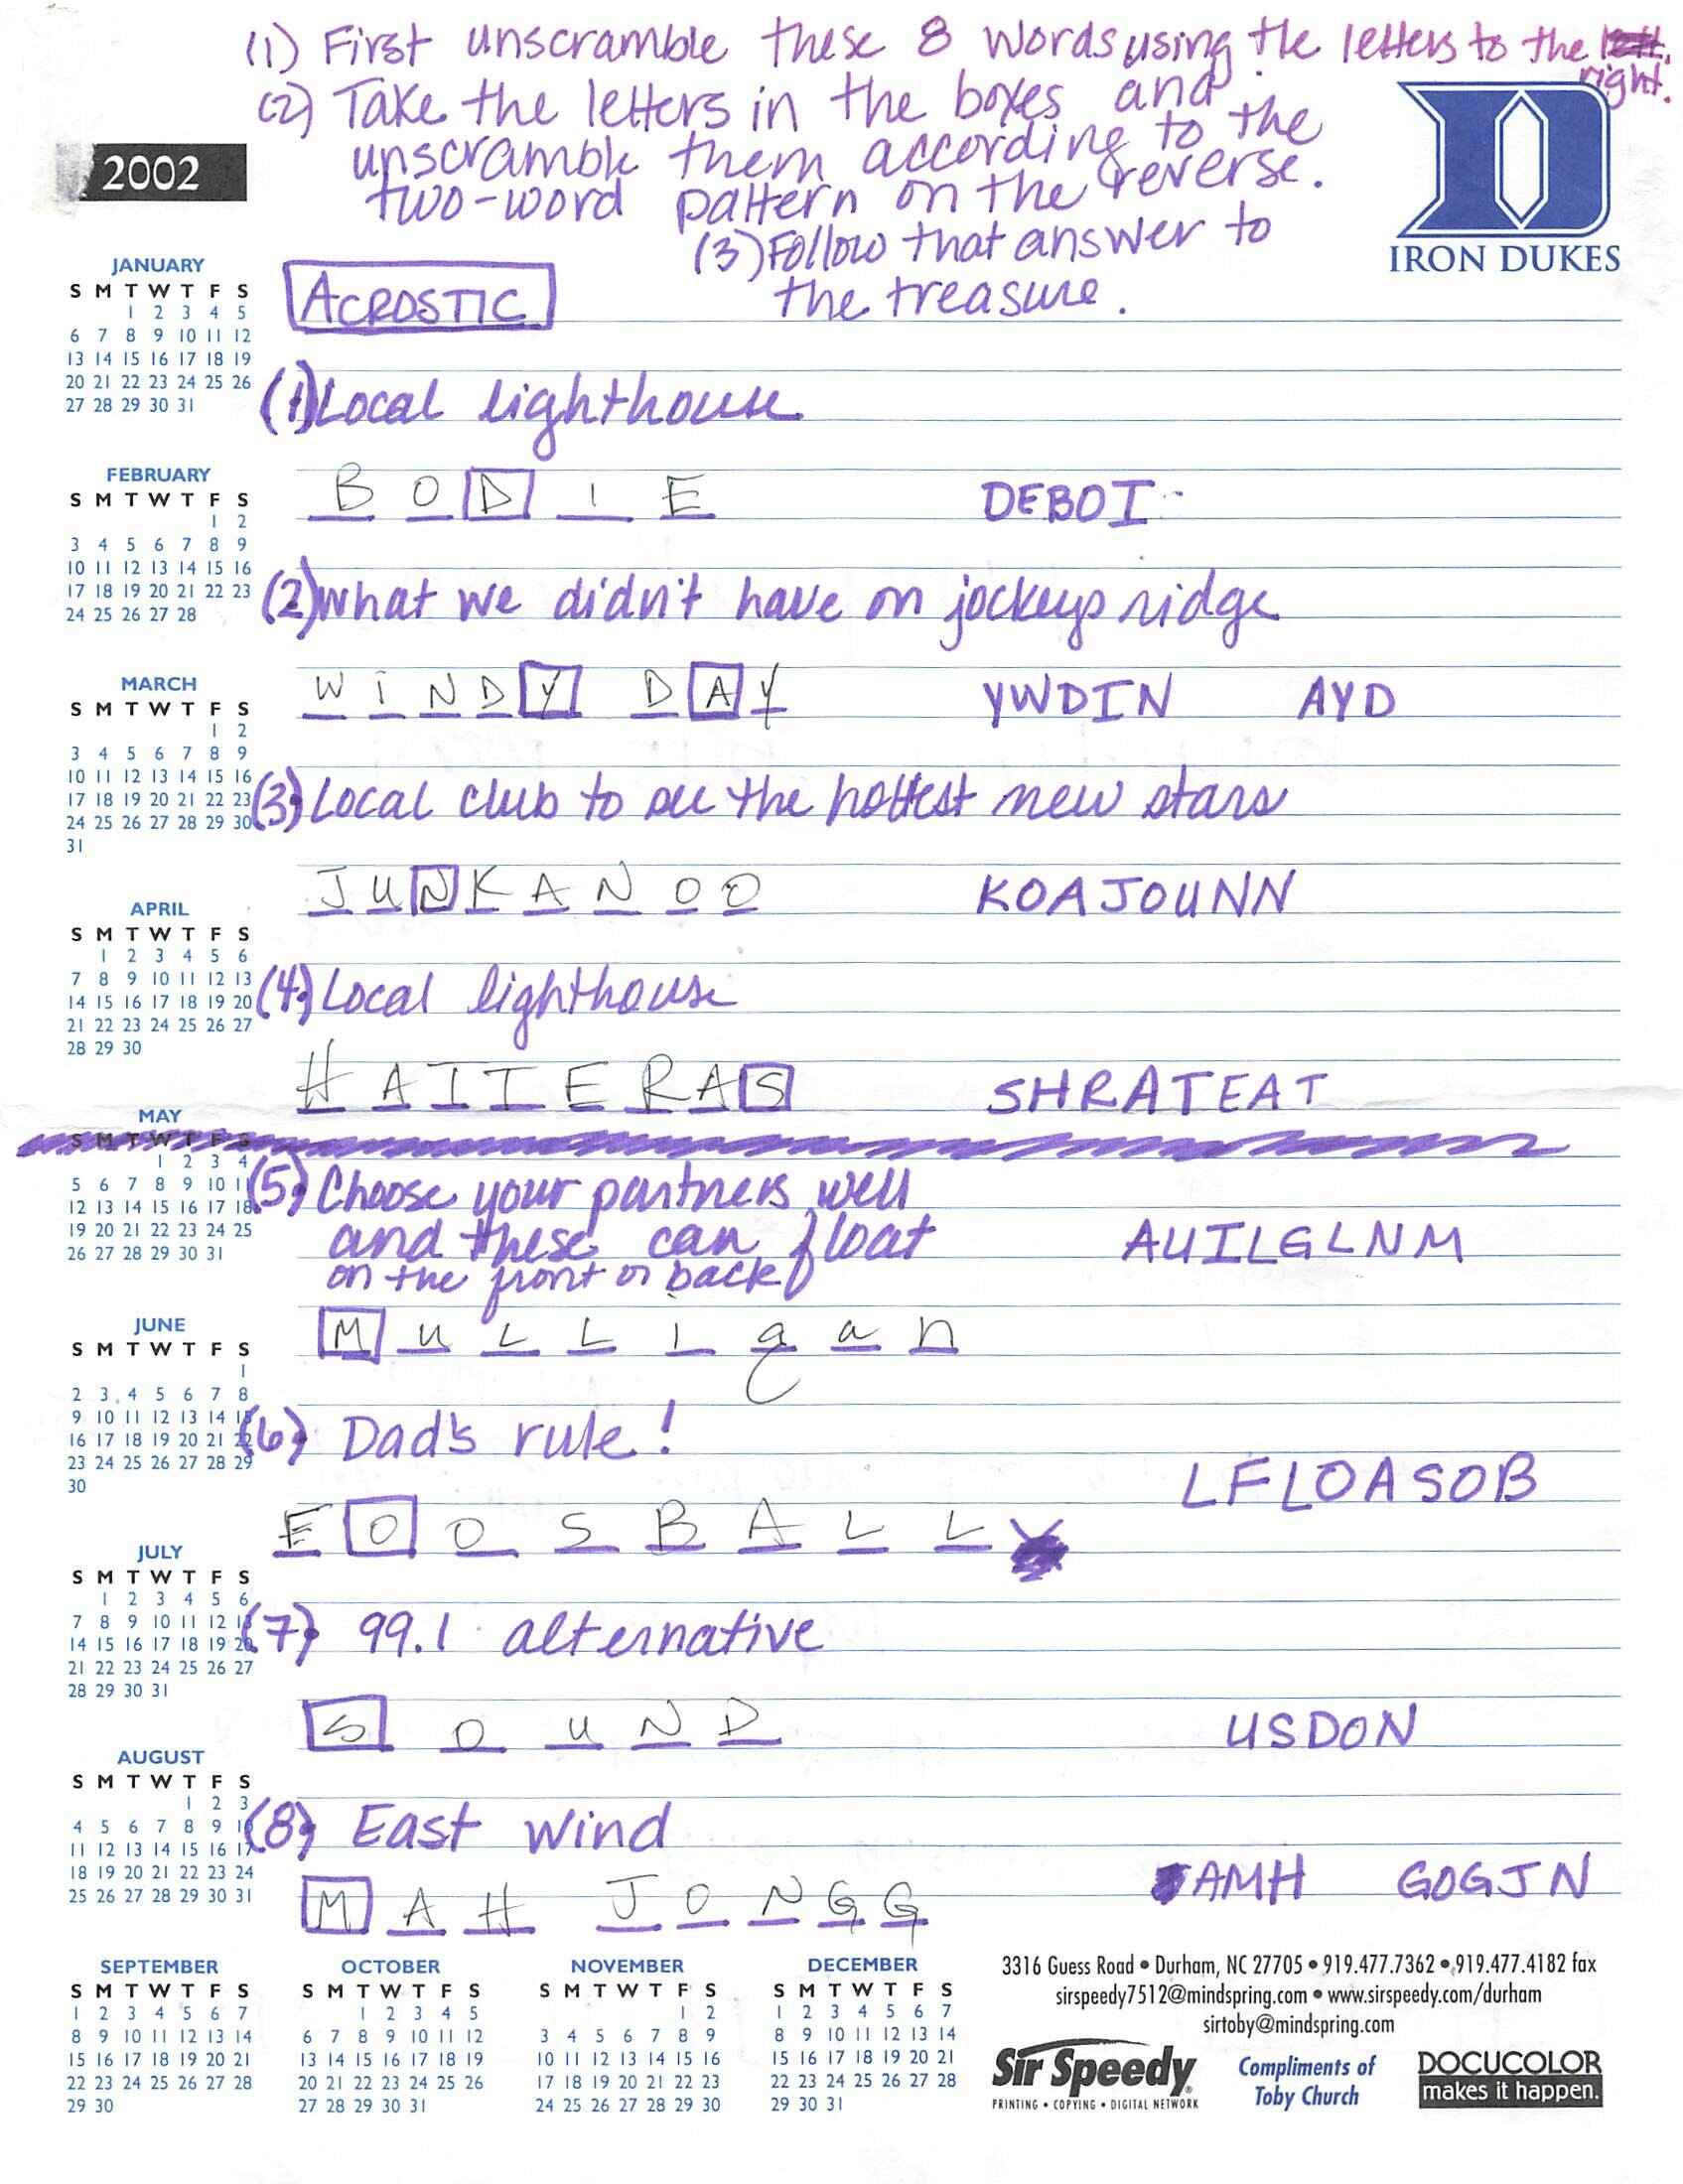 (1) First unscramble these 8 words using the letters to the left. right.
(2) Take the letters in the boxes and
unscramble them according to the
two-word pattern on the reverse.
(3) Follow that answer to
the treasure.
2002
IRON DUKES
ACROSTIC
(1) Local lighthouse
B O D I E DEBOI
(2) What we didn't have on jockeys ridge
W I N D Y D A Y YWDIN AYD
(3) Local club to see the hottest new stars
J U N K A N O O KOAJOUNN
(4) Local lighthouse
H A T T E R A S SHRATEAT
(5) Choose your partners well
and these can float AUILGLNM
on the front or back
M u L L I g a n
(6) Dad's rule!
LFLOASOB
F O O S B A L L
(7) 99.1 alternative
S O U N D USDON
(8) East wind
AMH GOGJN
M A H J O N G G
JANUARY
S M T W T F S
1 2 3 4 5
6 7 8 9 10 11 12
13 14 15 16 17 18 19
20 21 22 23 24 25 26
27 28 29 30 31
FEBRUARY
S M T W T F S
1 2
3 4 5 6 7 8 9
10 11 12 13 14 15 16
17 18 19 20 21 22 23
24 25 26 27 28
MARCH
S M T W T F S
1 2
3 4 5 6 7 8 9
10 11 12 13 14 15 16
17 18 19 20 21 22 23
24 25 26 27 28 29 30
31
APRIL
S M T W T F S
1 2 3 4 5 6
7 8 9 10 11 12 13
14 15 16 17 18 19 20
21 22 23 24 25 26 27
28 29 30
MAY
S M T W T F S
1 2 3 4
5 6 7 8 9 10 11
12 13 14 15 16 17 18
19 20 21 22 23 24 25
26 27 28 29 30 31
JUNE
S M T W T F S
1
2 3 4 5 6 7 8
9 10 11 12 13 14 15
16 17 18 19 20 21 22
23 24 25 26 27 28 29
30
JULY
S M T W T F S
1 2 3 4 5 6
7 8 9 10 11 12 13
14 15 16 17 18 19 20
21 22 23 24 25 26 27
28 29 30 31
AUGUST
S M T W T F S
1 2 3
4 5 6 7 8 9 10
11 12 13 14 15 16 17
18 19 20 21 22 23 24
25 26 27 28 29 30 31
SEPTEMBER
S M T W T F S
1 2 3 4 5 6 7
8 9 10 11 12 13 14
15 16 17 18 19 20 21
22 23 24 25 26 27 28
29 30
OCTOBER
S M T W T F S
1 2 3 4 5
6 7 8 9 10 11 12
13 14 15 16 17 18 19
20 21 22 23 24 25 26
27 28 29 30 31
NOVEMBER
S M T W T F S
1 2
3 4 5 6 7 8 9
10 11 12 13 14 15 16
17 18 19 20 21 22 23
24 25 26 27 28 29 30
DECEMBER
S M T W T F S
1 2 3 4 5 6 7
8 9 10 11 12 13 14
15 16 17 18 19 20 21
22 23 24 25 26 27 28
29 30 31
3316 Guess Road • Durham, NC 27705 • 919.477.7362 • 919.477.4182 fax
sirspeedy7512@mindspring.com • www.sirspeedy.com/durham
sirtoby@mindspring.com
Sir Speedy
PRINTING • COPYING • DIGITAL NETWORK
Compliments of
Toby Church
DOCUCOLOR
makes it happen.